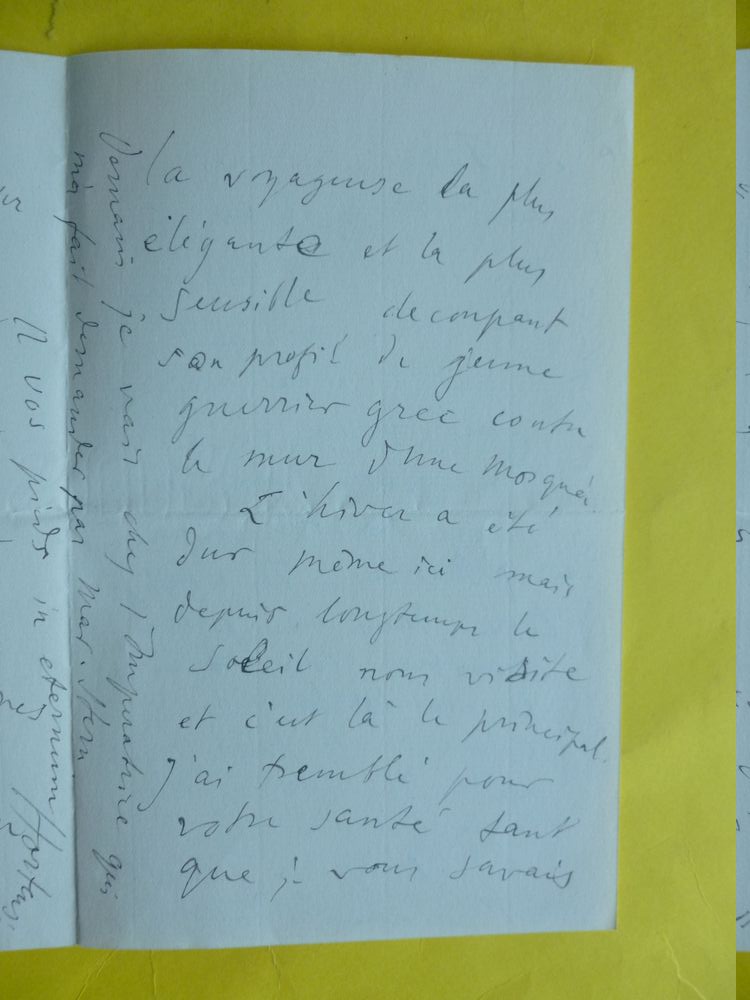 la voyageuse la plus
élégante et la plus
sensible decoupant
son profil de jeune
guerrier grec contre
le mur d'une mosquée
L'hiver a été
dur même ici mais
depuis longtemps le
soleil nous visite
et c'est là le principal.
J'ai tremblé pour
votre santé tant
que je vous savais
Demain je vais chez l'Impératrice qui
m'a fait demander par Mad. Stern
A vos pieds in eternum